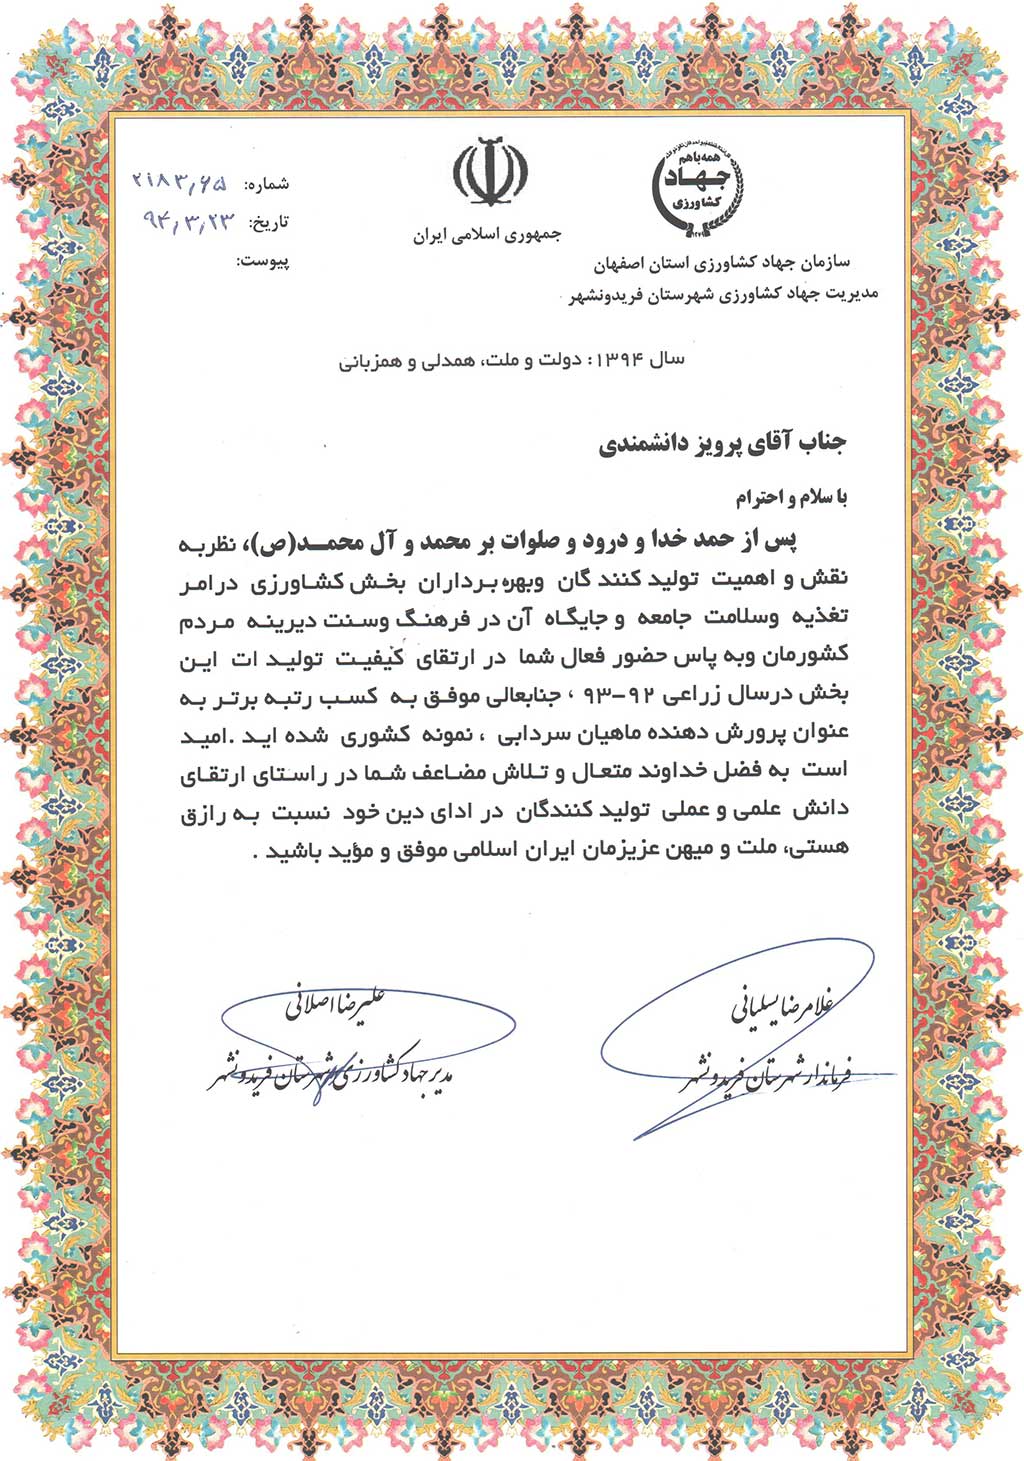 همه با هم
جهاد
کشاورزی
جمهوری اسلامی ایران
شماره: ۲۱۸۳٫۶۵
تاریخ: ۹۴٫۳٫۲۳
پیوست:
سازمان جهاد کشاورزی استان اصفهان
مدیریت جهاد کشاورزی شهرستان فریدونشهر
سال ۱۳۹۴: دولت و ملت، همدلی و همزبانی
جناب آقای پرویز دانشمندی
با سلام و احترام
پس از حمد خدا و درود و صلوات بر محمد و آل محمد(ص)، نظربه
نقش و اهمیت تولید کنند گان وبهره برداران بخش کشاورزی درامر
تغذیه وسلامت جامعه و جایگاه آن در فرهنگ وسنت دیرینه مردم
کشورمان وبه پاس حضور فعال شما در ارتقای کیفیت تولید ات این
بخش درسال زراعی ۹۲-۹۳ ، جنابعالی موفق به کسب رتبه برتر به
عنوان پرورش دهنده ماهیان سردابی ، نمونه کشوری شده اید .امید
است به فضل خداوند متعال و تلاش مضاعف شما در راستای ارتقای
دانش علمی و عملی تولید کنندگان در ادای دین خود نسبت به رازق
هستی، ملت و میهن عزیزمان ایران اسلامی موفق و مؤید باشید .
غلامرضا سلیمانی
فرماندار شهرستان فریدونشهر
علیرضا اصلانی
مدیر جهاد کشاورزی شهرستان فریدونشهر